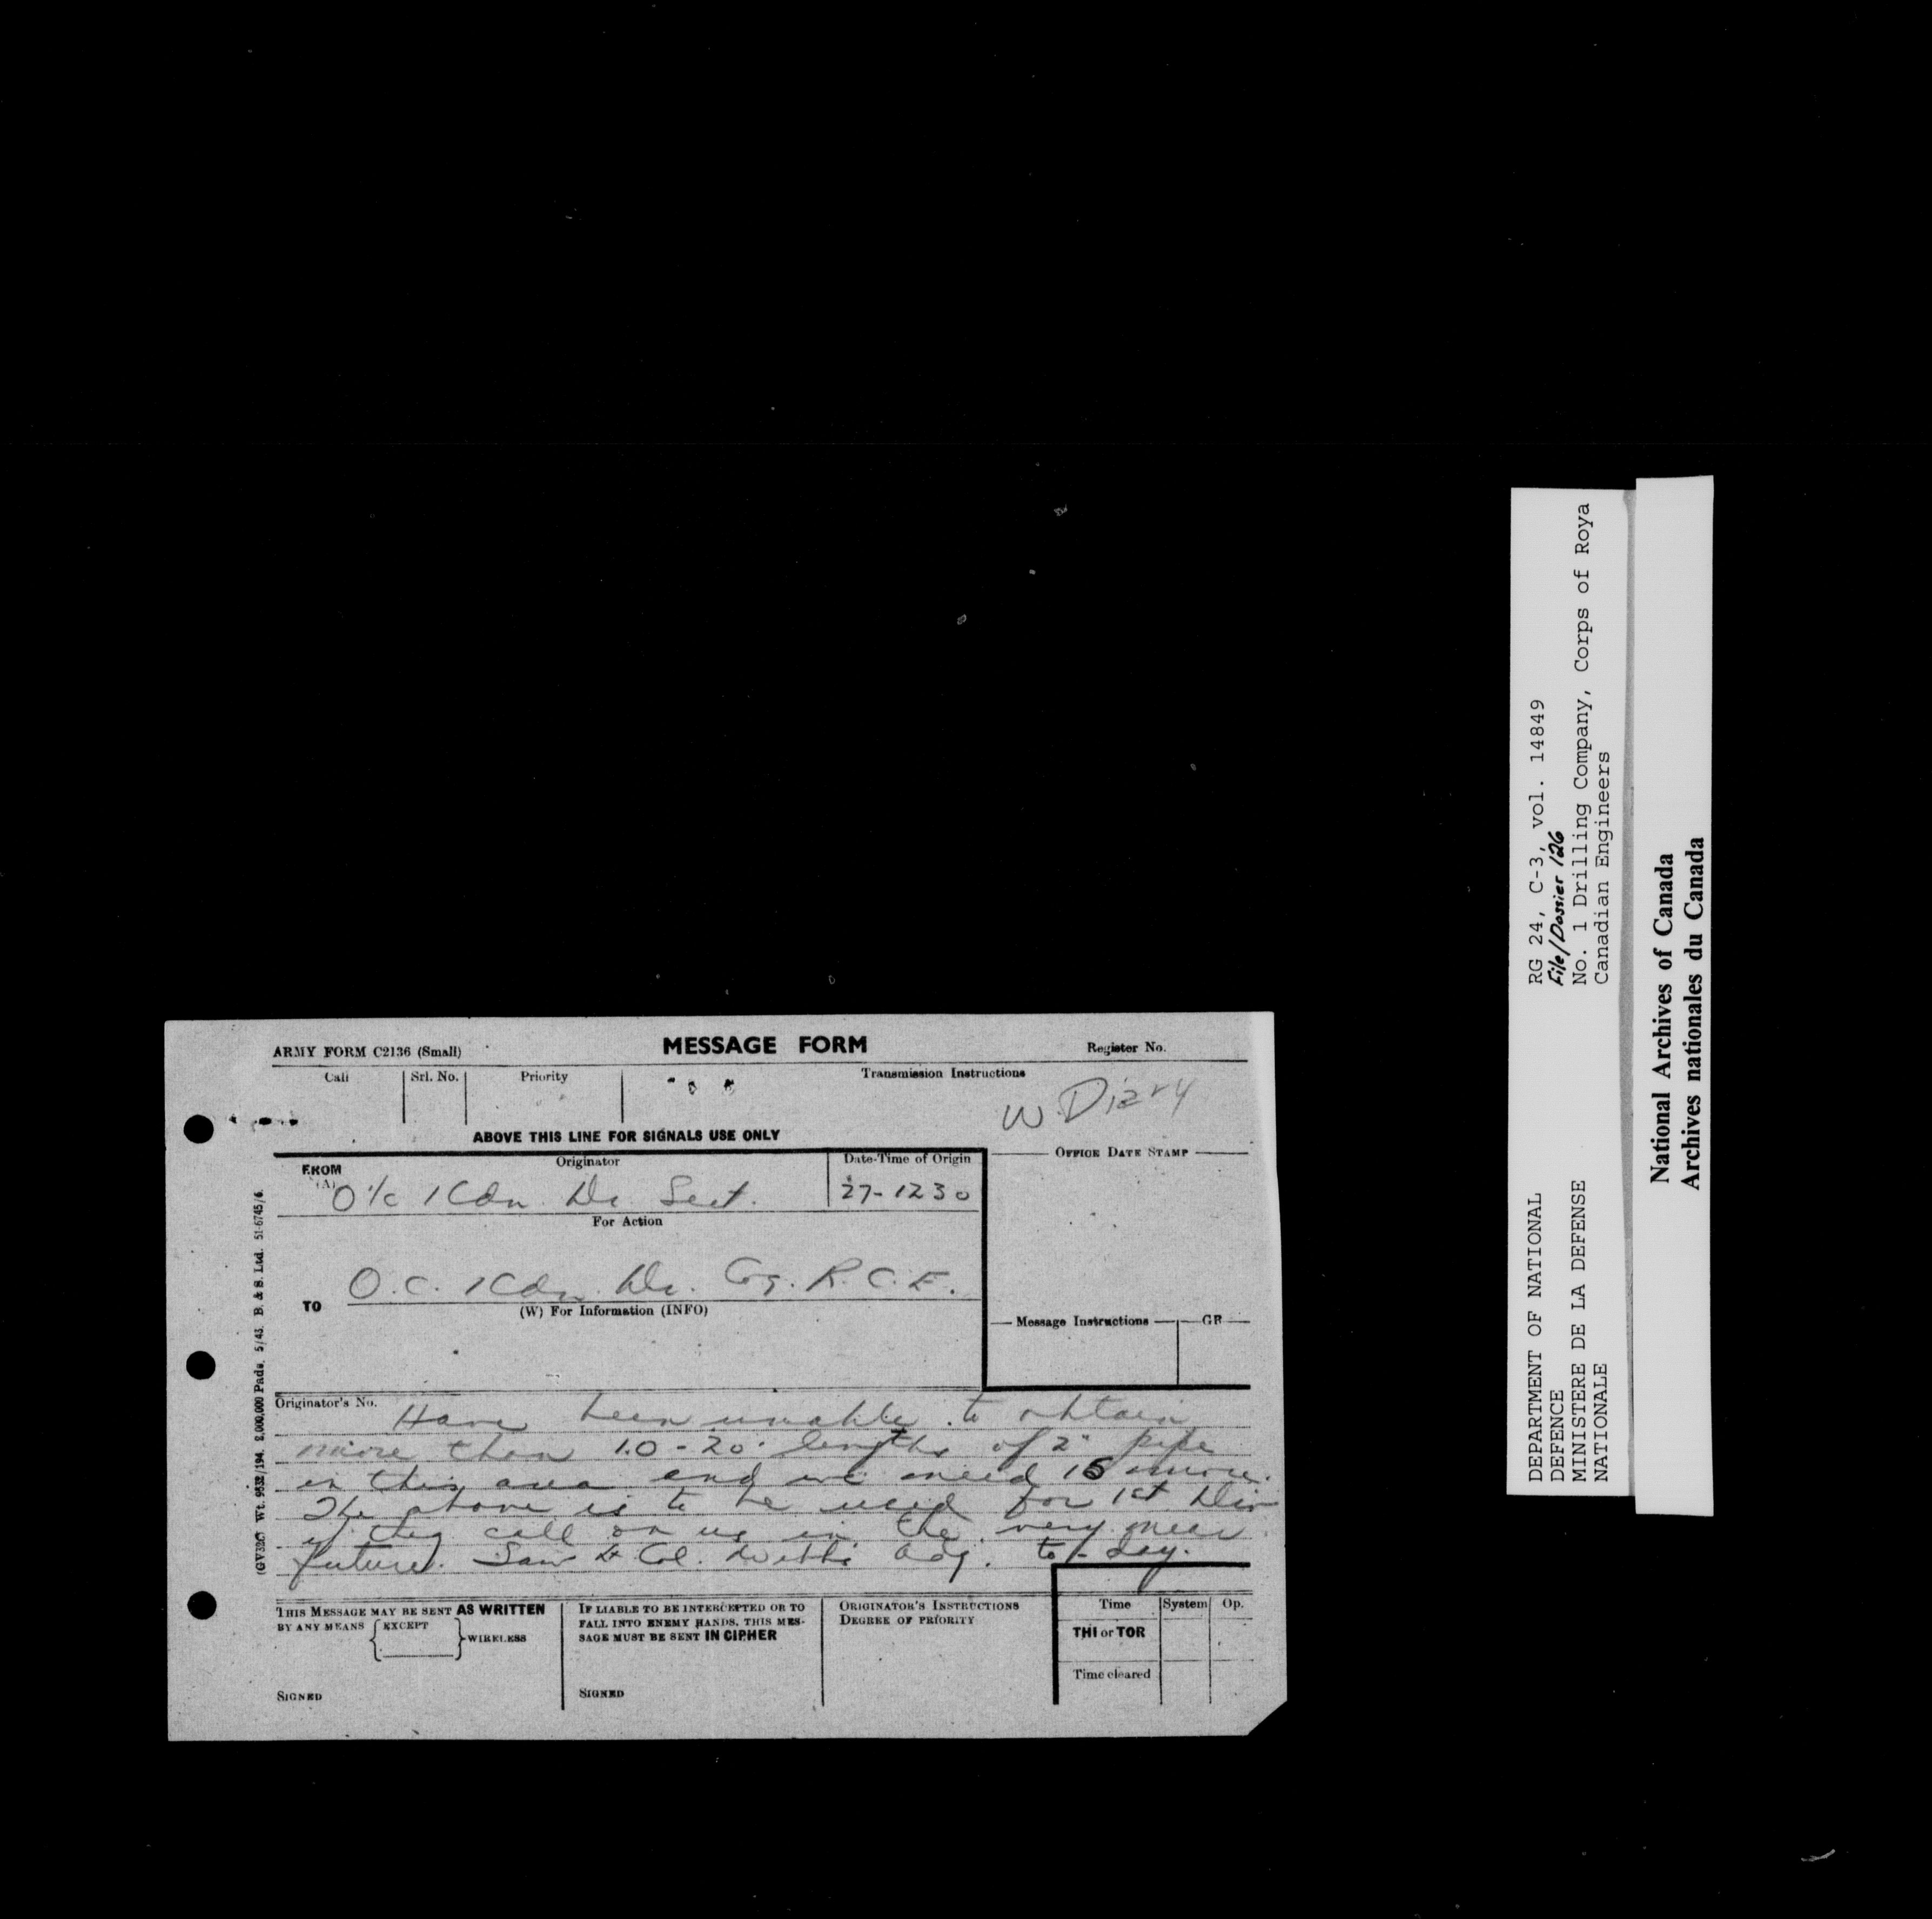 ARMY FORM C2136 (Small)
MESSAGE FORM
Register No.
Call
Srl. No.
Priority
Transmission Instructions
W. Diary
ABOVE THIS LINE FOR SIGNALS USE ONLY
FROM
(A)
Originator
Date-Time of Origin
OFFICE DATE STAMP
O i/c 1 Cdn Dr. Sect.
27-1230
For Action
O.C. 1 Cdn. Dr. Coy. R.C.E.
TO
(W) For Information (INFO)
Message Instructions
GR
Originator's No.
Have been unable to obtain
more than 10 - 20' lengths of 2" pipe
in this area and we need 15 more.
The above is to be used for 1st Div
if they call on us in the very near
future. Saw Lt Col. Adj. to-day.
THIS MESSAGE MAY BE SENT AS WRITTEN
BY ANY MEANS
EXCEPT
WIRELESS
SIGNED
IF LIABLE TO BE INTERCEPTED OR TO
FALL INTO ENEMY HANDS, THIS MES-
SAGE MUST BE SENT IN CIPHER
SIGNED
ORIGINATOR'S INSTRUCTIONS
DEGREE OF PRIORITY
Time
System
Op.
THI or TOR
Time cleared
Wt. 9532/194. 2,000,000 Pads. 5/43. B. & S. Ltd. 51-6745/6.
DEPARTMENT OF NATIONAL
DEFENCE
MINISTERE DE LA DEFENSE
NATIONALE
RG 24, C-3, vol. 14849
File/Dossier 126
No. 1 Drilling Company, Corps of Roya
Canadian Engineers
National Archives of Canada
Archives nationales du Canada